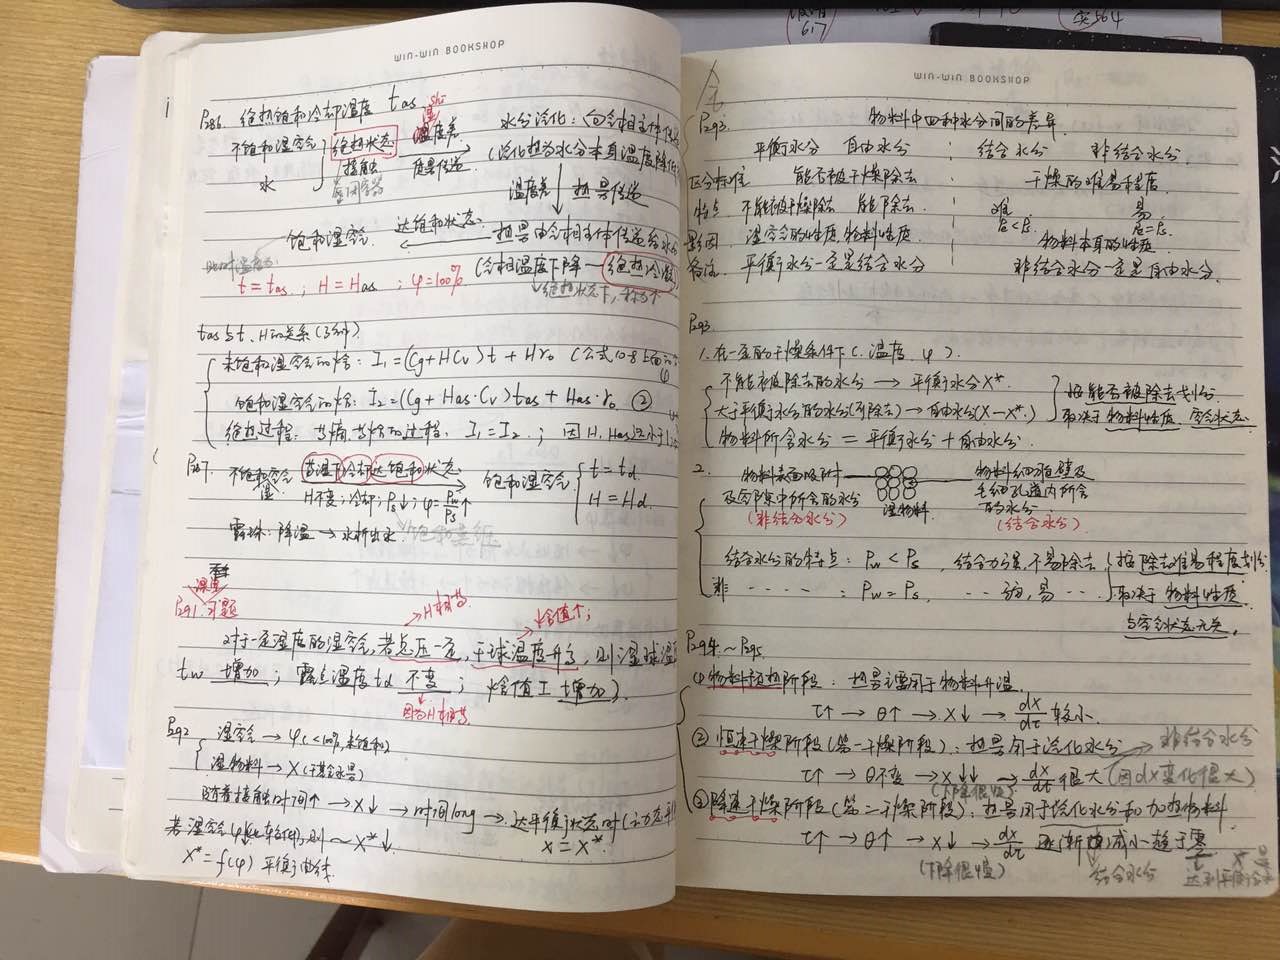 WIN-WIN BOOKSHOP
P286. 绝热饱和冷却温度 tas
shi
湿
不饱和湿空气
水
绝热状态
接触
密闭容器
温度差
质量传递
水分汽化：向空气相主体传递
(汽化热为水分本身温度降低
温度差 热量传递
饱和湿空气 达饱和状态 热量由空气相主体传递给水分
此时温度为
(空气相温度下降—绝热冷却
绝热状态下，称为个
t = tas ; H = Has ; φ=100%
tas与t、H的关系(3种)
未饱和湿空气的焓: I₁ = (Cg + HCv) t + Hr₀ (公式10-8
饱和湿空气的焓: I₂ = (Cg + Has·Cv) tas + Has·r₀ ②
绝热过程: 等焓 等焓的过程, I₁ = I₂ ; 因H, Has
P287. 不饱和湿空气 等湿下冷却达饱和状态 饱和湿空气 t = td
H不变；冷却；Ps↓；φ=Pw/Ps↑ H = Hd
露珠：降温 → 水析出水 饱和蒸汽
课堂
P291. 习题
H相等 焓值↑;
对于一定湿度的湿空气, 若总压一定, 干球温度升高, 则湿球温度
tw 增加 ; 露点温度 td 不变 ; 焓值 I 增加).
因为H相等
P292 湿空气 → φ (<100%, 未饱和)
湿物料 → X (干基含水量)
随着接触时间↑ → X↓ → 时间long → 达平衡状态时
X = X*.
若湿空气φ 则 ~ X*↓
X* = f(φ) 平衡曲线.
WIN-WIN BOOKSHOP
P293. 物料中四种水分间的差异.
平衡水分 自由水分 结合水分 非结合水分
区分标准 能否被干燥除去 干燥的难易程度.
特点. 不能被干燥除去 能除去. 难 易
P<Ps P=Ps.
影因. 湿空气的性质, 物料性质. 物料本身的性质
备注. 平衡水分一定是结合水分 非结合水分一定是自由水分.
P293
1. 在一定的干燥条件下 (. 温度. φ).
不能被除去的水分 → 平衡水分X*. 按能否被除去划分
大于平衡水分的水分(可除去) → 自由水分(X−X*.) 取决于物料性质、空气状态.
物料所含水分 = 平衡水分 + 自由水分.
2. 物料表面吸附 物料细胞壁及
及空隙中所含的水分 湿物料. 毛细孔道内所含
的水分
(非结合水分) (结合水分)
结合水分的特点: Pw < Ps, 结合力强, 不易除去 按除去难易程度划分
非 ‥‥‥ : Pw = Ps, ‥ 弱, 易 ‥ 取决于物料性质.
与空气状态无关.
P294. ~ P295.
① 物料预热阶段: 热量主要用于物料升温.
τ↑ → θ↑ → X↓ → dX/dτ 较小.
② 恒速干燥阶段(第一干燥阶段): 热量用于汽化水分 非结合水分
τ↑ → θ不变 → X↓↓ → dX/dτ 很大 (因dX变化很大)
(下降很快)
③ 降速干燥阶段(第二干燥阶段): 热量用于汽化水分和加热物料.
τ↑ → θ↑ → X↓ → dX/dτ 逐渐减小趋于零
(下降很慢) 结合水分 达到平衡